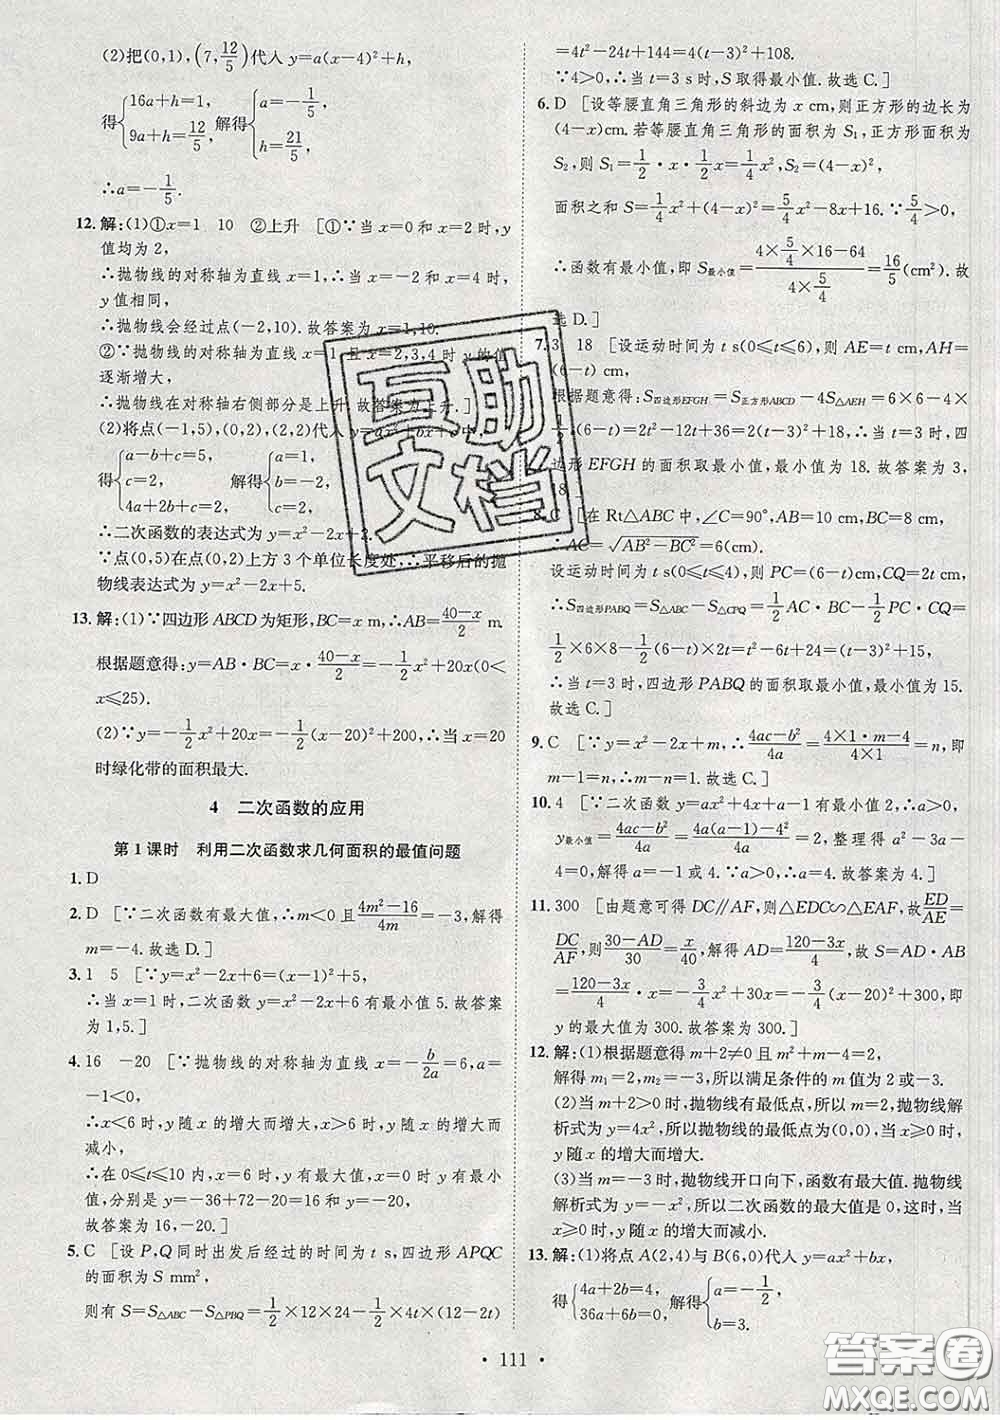 (2)把(0,1),(7,12/5)代入 y=a(x-4)²+h,
得{16a+h=1, 9a+h=12/5, 解得{a=-1/5, h=21/5.
∴a=-1/5.
12.解:(1)①x=1 10 ②上升 [①∵当 x=0 和 x=2 时,y
值均为 2,
∴抛物线的对称轴为直线 x=1,∴当 x=-2 和 x=4 时,
y 值相同,
∴抛物线会经过点(-2,10).故答案为 x=1,10.
②∵抛物线的对称轴为直线 x=1,且 x=2,3,4 时 y 的值
逐渐增大,
∴抛物线在对称轴右侧部分是上升.故答案为上升.]
(2)将点(-1,5),(0,2),(2,2)代入 y=ax²+bx+c 中
{a-b+c=5, c=2, 4a+2b+c=2, 解得{a=1, b=-2, c=2,
∴二次函数的表达式为 y=x²-2x+2.
∵点(0,5)在点(0,2)上方 3 个单位长度处,∴平移后的抛
物线表达式为 y=x²-2x+5.
13.解:(1)∵四边形 ABCD 为矩形,BC=x m,∴AB=(40-x)/2 m.
根据题意得:y=AB·BC=x·(40-x)/2=-1/2x²+20x(0<
x≤25).
(2)∵y=-1/2x²+20x=-1/2(x-20)²+200,∴当 x=20
时绿化带的面积最大.
4 二次函数的应用
第 1 课时 利用二次函数求几何面积的最值问题
1.D
2.D [∵二次函数有最大值,∴m<0 且(4m²-16)/4m=-3,解得
m=-4.故选 D.]
3.1 5 [∵y=x²-2x+6=(x-1)²+5,
∴当 x=1 时,二次函数 y=x²-2x+6 有最小值 5.故答案
为 1,5.]
4.16 -20 [∵抛物线的对称轴为直线 x=-b/2a=6,a=
-1<0,
∴x<6 时,y 随 x 的增大而增大,x>6 时,y 随 x 的增大而
减小,
∴在 0≤t≤10 内,x=6 时,y 有最大值,x=0 时,y 有最小
值,分别是 y=-36+72-20=16 和 y=-20.
故答案为 16,-20.]
5.C [设 P,Q 同时出发后经过的时间为 t s,四边形 APQC
的面积为 S mm²,
则有 S=S△ABC-S△PBQ=1/2×12×24-1/2×4t×(12-2t)
=4t²-24t+144=4(t-3)²+108.
∵4>0,∴当 t=3 s 时,S 取得最小值.故选 C.]
6.D [设等腰直角三角形的斜边为 x cm,则正方形的边长为
(4-x)cm.若等腰直角三角形的面积为 S₁,正方形面积为
S₂,则 S₁=1/2·x·1/2x=1/4x²,S₂=(4-x)²,
面积之和 S=1/4x²+(4-x)²=5/4x²-8x+16.∵5/4>0,
∴函数有最小值,即 S最小值=(4×5/4×16-64)/(4×5/4)=16/5(cm²).故
选 D.]
7.3 18 [设运动时间为 t s(0≤t≤6),则 AE=t cm,AH=
(6-t) cm,
根据题意得:S四边形EFGH=S正方形ABCD-4S△AEH=6×6-4×
t(6-t)=2t²-12t+36=2(t-3)²+18,∴当 t=3 时,四
边形 EFGH 的面积取最小值,最小值为 18.故答案为 3,
18.]
8.C [在 Rt△ABC 中,∠C=90°,AB=10 cm,BC=8 cm,
∴AC=√(AB²-BC²)=6(cm).
设运动时间为 t s(0≤t≤4),则 PC=(6-t)cm,CQ=2t cm,
∴S四边形PABQ=S△ABC-S△CPQ=1/2AC·BC-1/2PC·CQ=
1/2×6×8-1/2(6-t)×2t=t²-6t+24=(t-3)²+15,
∴当 t=3 时,四边形 PABQ 的面积取最小值,最小值为 15.
故选 C.]
9.C [∵y=x²-2x+m,∴(4ac-b²)/4a=(4×1·m-4)/(4×1)=n,即
m-1=n,∴m-n=1.故选 C.]
10.4 [∵二次函数 y=ax²+4x+a-1 有最小值 2,∴a>0,
y最小值=(4ac-b²)/4a=(4a(a-1)-4²)/4a=2,整理得 a²-3a-
4=0,解得 a=-1 或 4.∵a>0,∴a=4.故答案为 4.]
11.300 [由题意可得 DC∥AF,则△EDC∽△EAF,故ED/AE=
DC/AF,则(30-AD)/30=x/40,解得 AD=(120-3x)/4.故 S=AD·AB
=(120-3x)/4·x=-3/4x²+30x=-3/4(x-20)²+300,即
y 的最大值为 300.故答案为 300.]
12.解:(1)根据题意得 m+2≠0 且 m²+m-4=2,
解得 m₁=2,m₂=-3,所以满足条件的 m 值为 2 或-3.
(2)当 m+2>0 时,抛物线有最低点,所以 m=2.抛物线解
析式为 y=4x²,所以抛物线的最低点为(0,0),当 x≥0 时,y
随 x 的增大而增大.
(3)当 m=-3 时,抛物线开口向下,函数有最大值.抛物线
解析式为 y=-x²,所以二次函数的最大值是 0,这时,当
x≥0 时,y 随 x 的增大而减小.
13.解:(1)将点 A(2,4)与 B(6,0)代入 y=ax²+bx,
得{4a+2b=4, 36a+6b=0, 解得{a=-1/2, b=3.
· 111 ·
互助
文档
答案圈
MXQE.COM